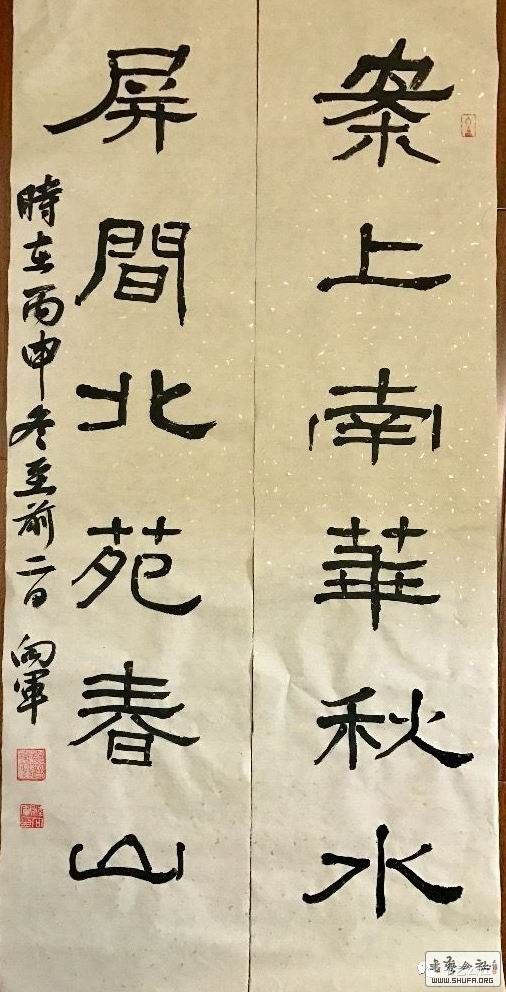 案上南華秋水
屏間北苑春山
時在丙申冬至前二日 向軍
書藝公社
WWW.SHUFA.ORG